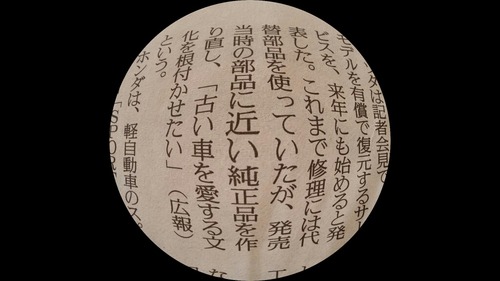 ダは記者会見で
モデルを有償で復元するサー
ビスを、来年にも始めると発
表した。これまで修理には代
替部品を使っていたが、発売
当時の部品に近い純正品を作
り直し、「古い車を愛する文
化を根付かせたい」（広報）
という。
ホンダは、軽自動車のス
「SPORT